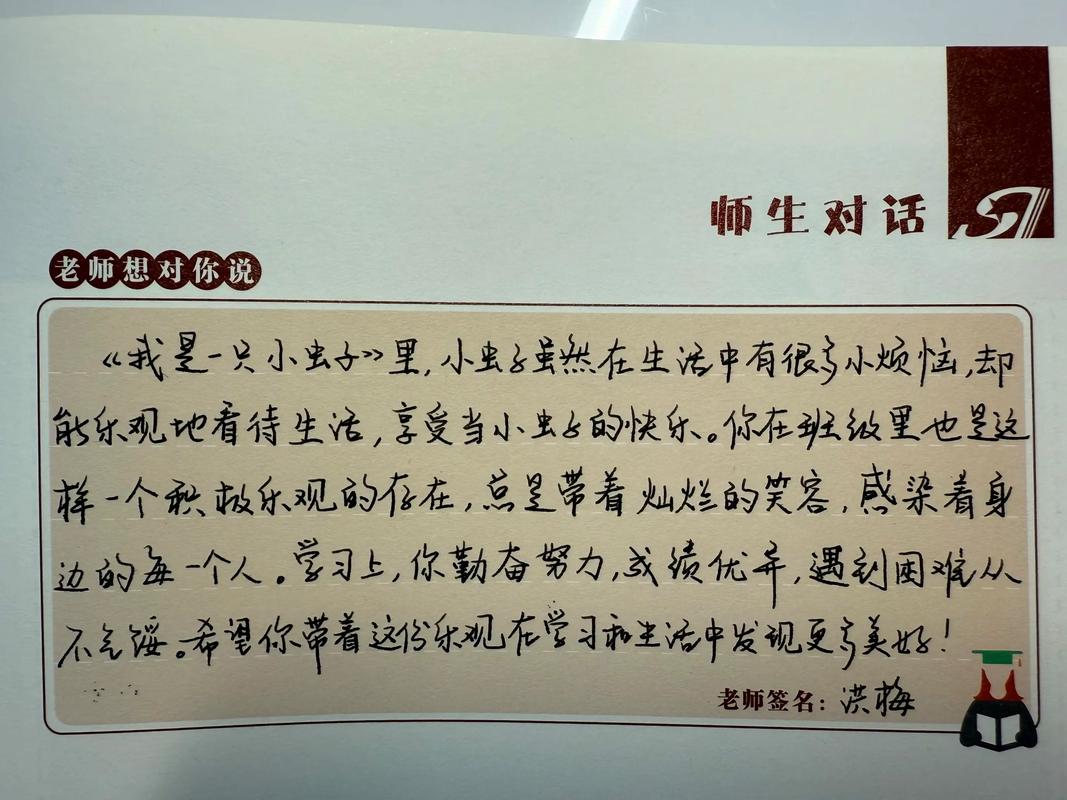 师生对话
老师想对你说
《我是一只小虫子》里,小虫子虽然在生活中有很多小烦恼,却
能乐观地看待生活,享受当小虫子的快乐。你在班级里也是这
样一个积极乐观的存在,总是带着灿烂的笑容,感染着身
边的每一个人。学习上,你勤奋努力,成绩优异,遇到困难从
不气馁。希望你带着这份乐观在学习和生活中发现更多美好!
老师签名:洪梅